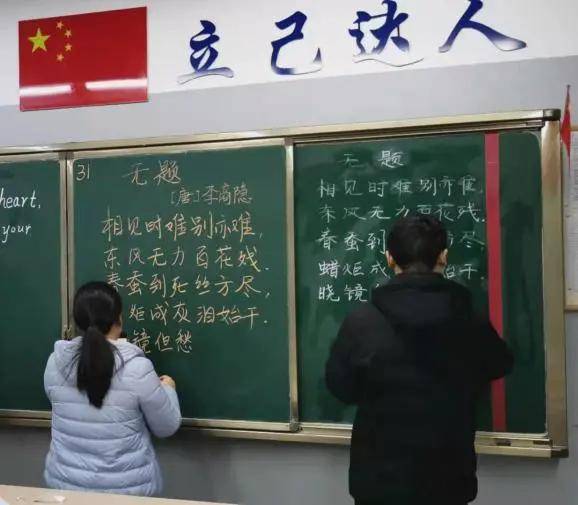 立己达人
heart,
your
31
无题
[唐]李商隐
相见时难别亦难,
东风无力百花残.
春蚕到死丝方尽,
炬成灰泪始干.
镜但愁
无题
相见时难别亦难,
东风无力百花残.
春蚕到 方尽
蜡炬成 始干.
晓镜